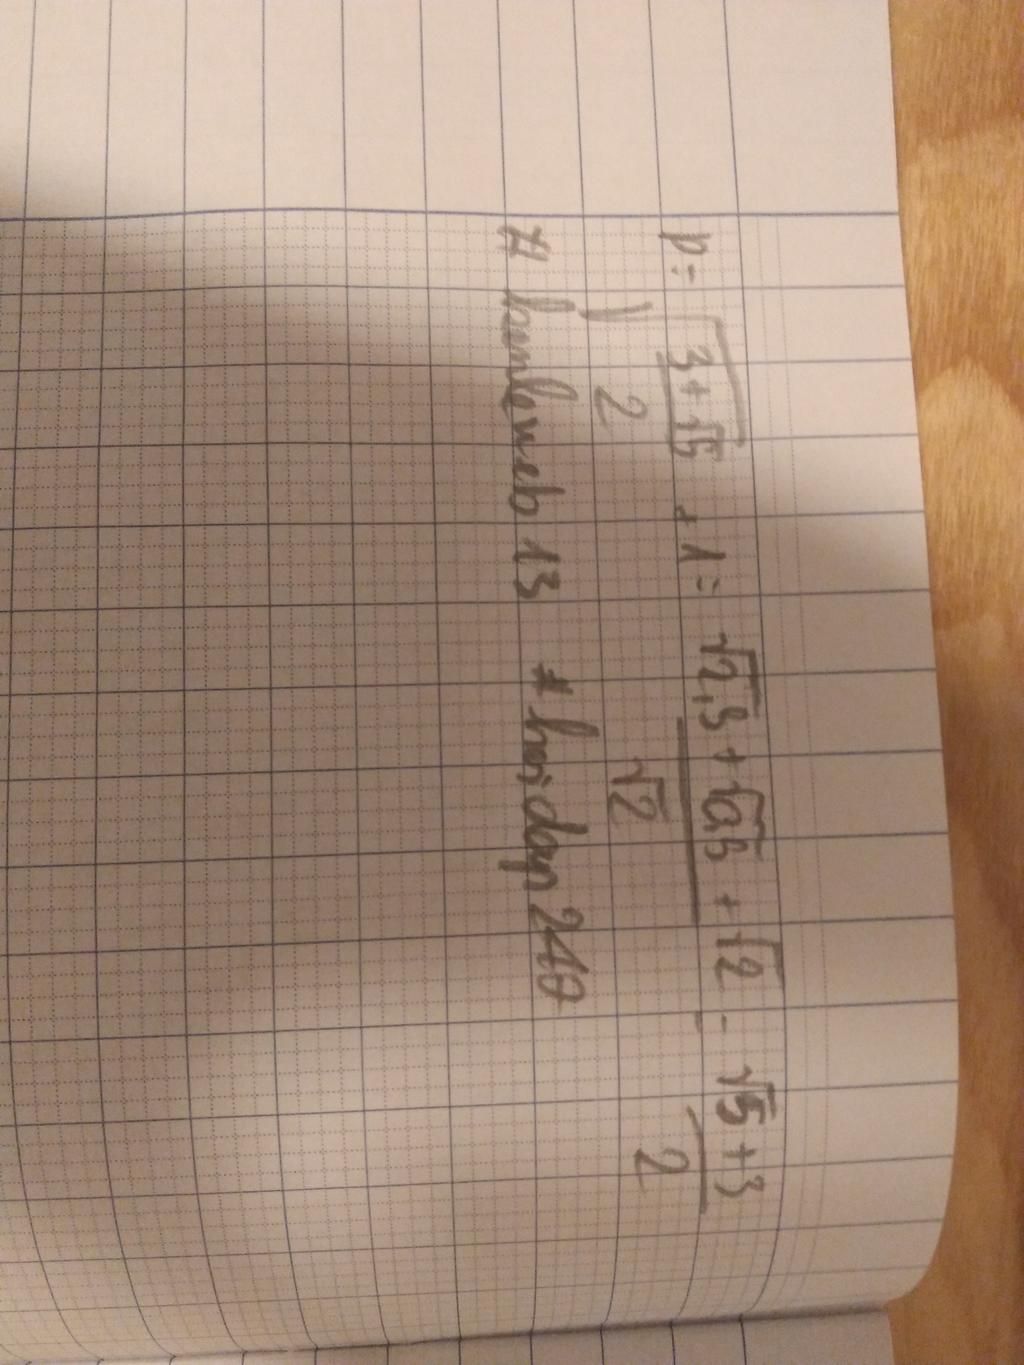 p = √((3+√5)/2) + 1 = (√2,3 + √0,5 + √2)/√2 = (√5+3)/2
# banleweb 13 # hoidap 240